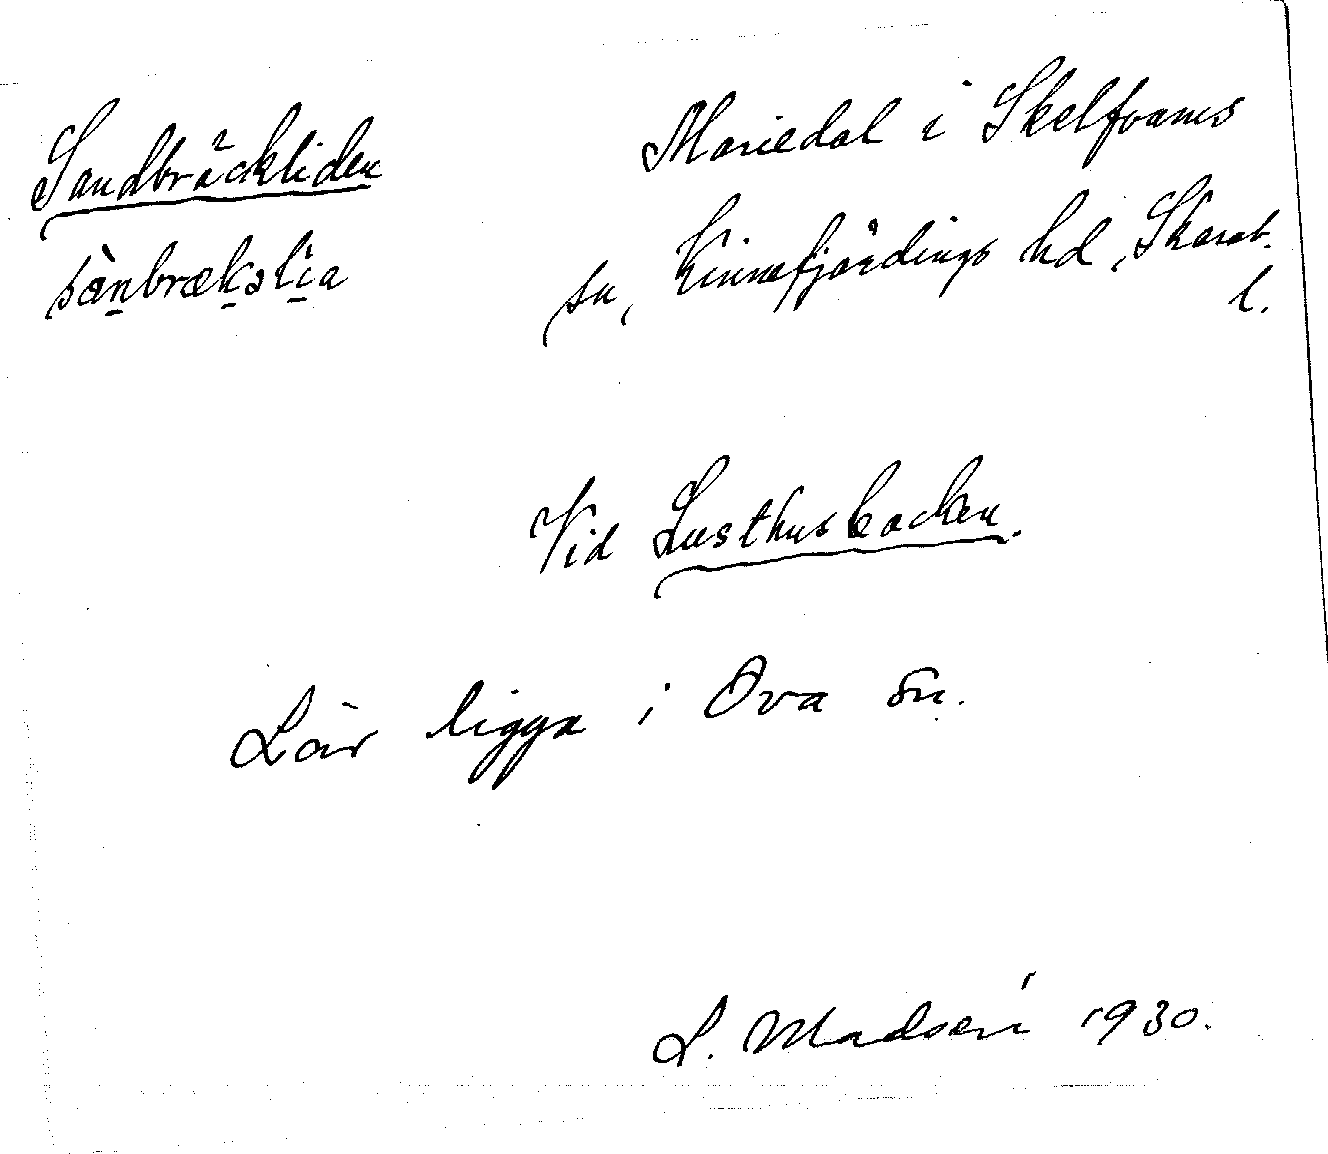 Sandbräckliden
Mariedal i Skelfvums
sn, Kinnefjärdings hd, Skarab.
l.
sànbrækslia
Vid Lusthusbacken.
Lär ligga i Ova sn.
L. Madsén 1930.